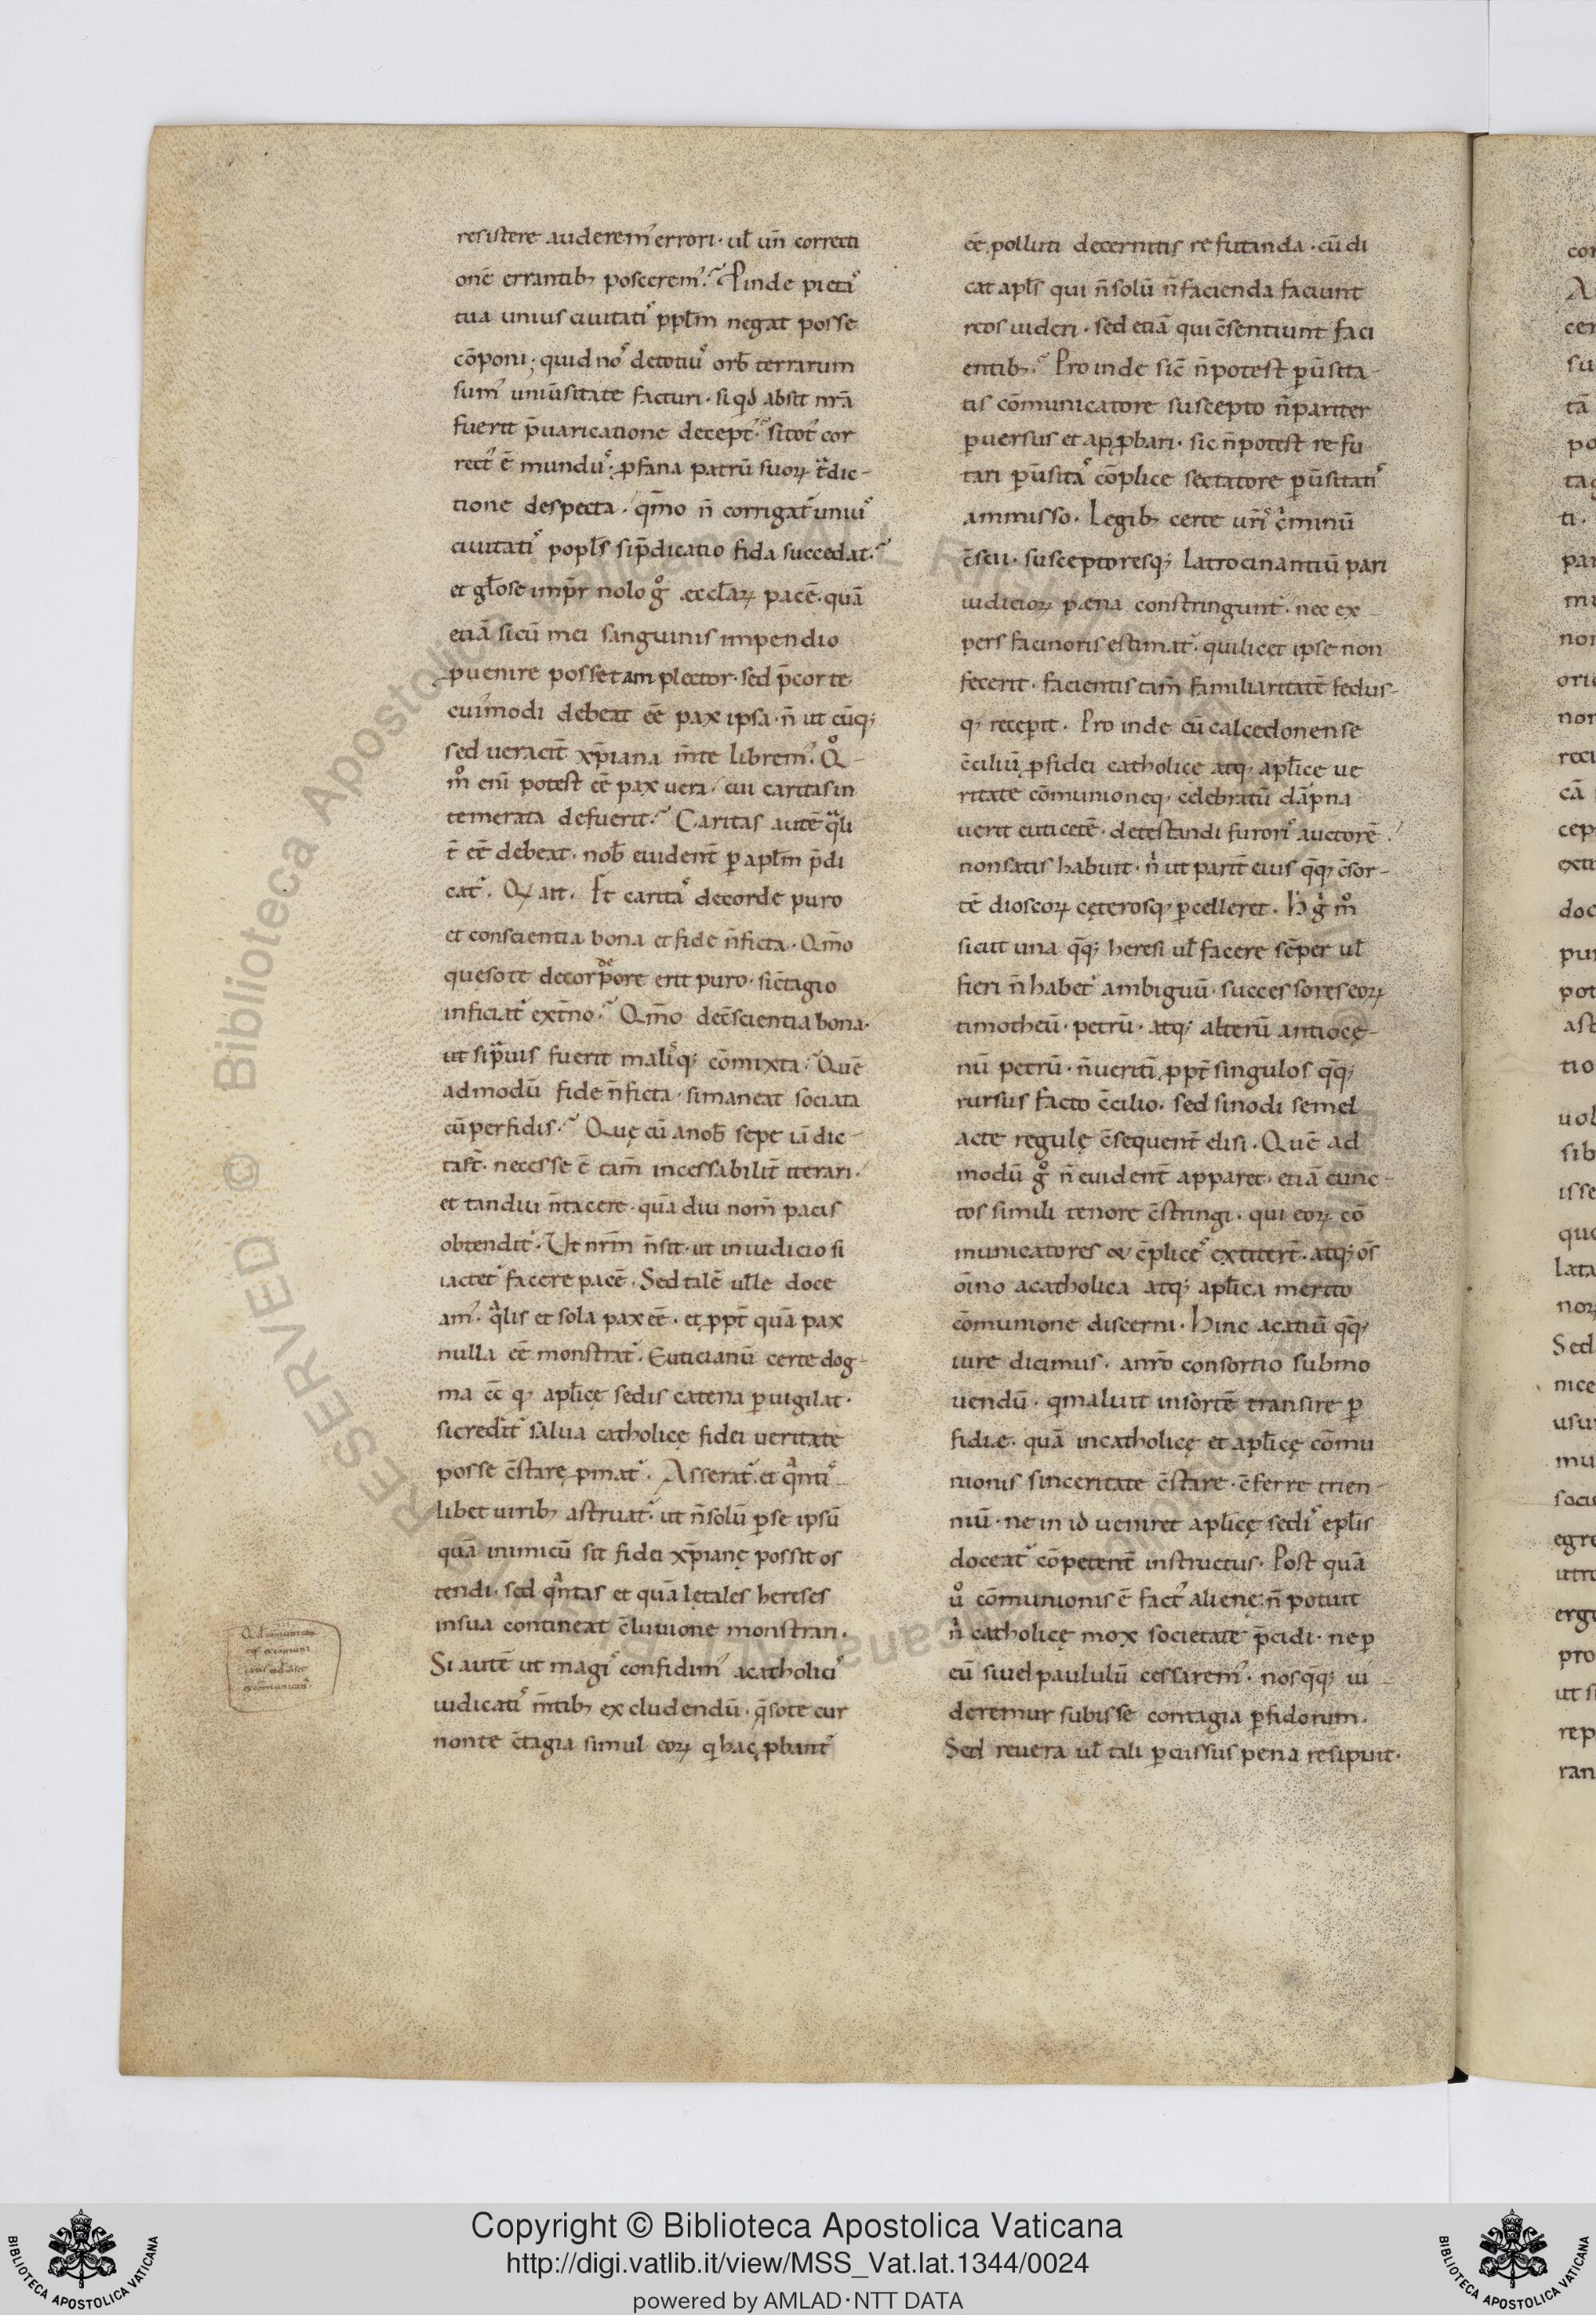 resistere auderem᾿ errori · ul̄ un̄ correcti
onē errantib; poscerem᾿. Pinde pieta᾿
tua unius ciuitati᾿ ppl̄m negat posse
cōponi · quid no᾿ de totiu᾿ orb̄ terrarum
sum᾿ uniūsitate facturi · si qd absit nr̄a
fuerit p̄uaricatione decept᾿. si tot᾿ cor
rect᾿ ē mundu᾿ · ꝓfana patrū suoꝝ t̄dic-
tione despecta · qm̄o n̄ corrigat᾿ unui᾿
ciuitati᾿ popl̄s si p̄dicatio fida succedat.
et gl̄ose imp̄r nolo gͦ æccl̄aꝝ pacē · quā
etiā si cū mei sanguinis impendio
puenire posset amplector · sed p̄cor te
cui᾿modi debeat eē pax ipsa · n̄ ut cūq;
sed ueracit̄ xp̄iana m̄te librem᾿. Qͦ-
mͦ eni̅ potest eē pax uera · cui caritas in
temerata defuerit. Caritas autē qͣli
t̄ eē debeat · nob̄ euident̄ ꝑ apl̄m p̄di
cat᾿. Qꝝ ait. Et carita᾿ de corde puro
et conscientia bona et fide n̄ ficta. Qm̄o
queso te de cor de p̄ore erit puro · si c̄tagio
inficiat᾿ ext̄no. Qm̄o de c̄scientia bona ·
ut si pͣuis fuerit malisq; cōmixta. Quē
admodū fide n̄ ficta · si maneat sociata
cū perfidis. Quę cū a nob̄ sepe iā dic-
ta st̄ · necesse ē tam̄ incessabilit̄ iterari.
et tandiu n̄ tacere · quā diu nom̄ pacis
obtendit᾿. Ut nrm̄ n̄ sit · ut inuidiosi
iactet᾿ facere pacē. Sed talē uelle doce
am᾿. qͣlis et sola pax eē · et ꝓpt̄ quā pax
nulla eē monstrat᾿. Euticianū certe dog-
ma eē qꝫ apl̄icę sedis catena ꝑuigilat ·
si credit᾿ salua catholicę fidei ueritate
posse c̄stare ꝓmat᾿. Asserat᾿. et qͣnti᾿
libet uirib; astruat᾿. ut n̄ solū ꝑ se ipsū
quā inimicū sit fidei xp̄ianę possit os
tendi · sed qͣntas et quā lętales hereses
in sua contineat c̄luuione monstrari.
Si autē ut magi᾿ confidim᾿ a catholici᾿
iudicati᾿ m̄tib; excludendū · qͣso te cur
non te c̄tagia simul eoꝝ qi hac ꝓbant᾿
eē polluti decernitis refutanda · cū di
cat apl̄s qui n̄ solū n̄ facienda faciunt
reos uideri · sed etiā qui c̄sentiunt faci
entib;. Proinde sic̄ n̄ potest ꝑūsita
tis cōmunicatore suscepto n̄ pariter
ꝑuersus et apꝓbari · sic n̄ potest refu
tari ꝑūsita᾿ cōplice sectatore ꝑūsitati᾿
ammisso. Legib; certe ur̄i᾿ c᾿minū
c̄scii · susceptoresq; latrocinantiū pari
iudicioꝝ pæna constringunt᾿. nec ex
pers facinoris estimat᾿. qui licet ipse non
fecerit · facientis tam̄ familiaritatē fedus-
q; recepit. Proinde cū calcedonense
c̄ciliū ꝓ fidei catholicę atq; apl̄icę ue
ritate cōmunioneq; celebratū dāpna
uerit euticetē · detestandi furori᾿ auctorē
non satis habuit · ni ut parit̄ eius qͣq; c̄sor-
tē dioscoꝝ cęterosq; ꝑcelleret. H᾿ gi mͦ
sicut una qͣq; heresi ul̄ facere sēper ul̄
fieri n̄ habet᾿ ambiguū · successores eoꝝ
timotheū · petrū · atq; alterū antiocę-
nū petrū · n̄ ueriti ꝓpt̄ singulos qͣq;
rursus facto c̄cilio · sed sinodi semel
acte regulę c̄sequent̄ elisi. Quē ad
modū gͦ n̄ euident̄ apparet · etiā cunc-
tos simili tenore c̄stringi · qui eoꝝ cō
municatores & c̄plice᾿ extiter̄t · atq; oīs
oīno a catholica atq; apl̄ica merito
cōmunione discerni. Hinc acatiū qͣq;
iure dicimus · a nr̄o consortio submo
uendū · qi maluit in sortē transire ꝑ
fidie · quā in catholicę et apl̄icę cōmu
nionis sinceritate c̄stare · c̄ferre trien
niū · ne in id ueniret apl̄icę sedi᾿ epl̄is
doceat᾿ cōpetent̄ instructus. Post quā
uͦ cōmunionis ē fact᾿ alienę · n̄ potuit
ni catholicę mox societate p̄cidi · ne ꝑ
eū si uel paululū cessarem᾿. nos qͣq; ui
deremur subisse contagia ꝑfidorum.
Sed reuera ul̄ tali ꝑcussus pena resipuit.
Copyright © Biblioteca Apostolica Vaticana
http://digi.vatlib.it/view/MSS_Vat.lat.1344/0024
powered by AMLAD·NTT DATA
BIBLIOTECA APOSTOLICA VATICANA
BIBLIOTECA APOSTOLICA VATICANA